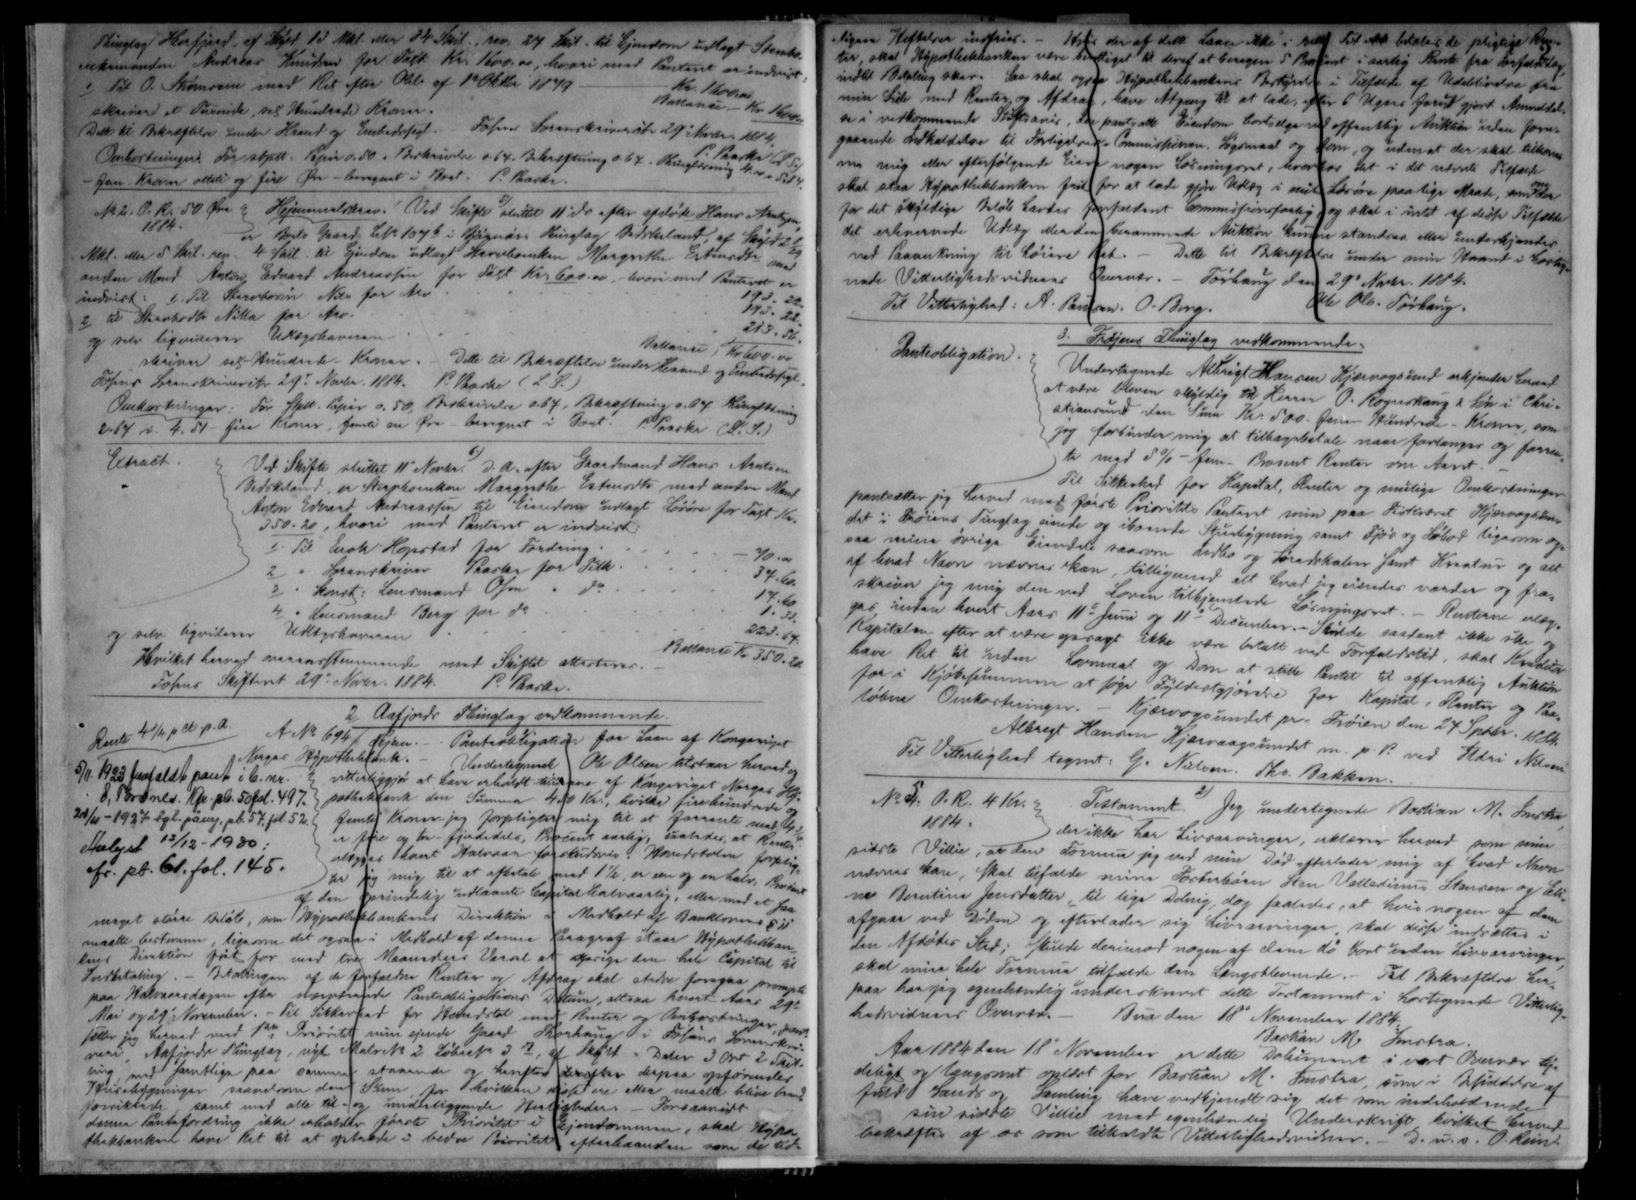 Thinglag Herfjord, af Skyld 13 Mkl. eller 24 Skil., rev. 27 Skil. til Ejendom udlagt
enkemanden Andreas Knudsen for Taxt Kr. 1600.00, hvori med Panteret er indvist:
1, Til O. Strømsem med Ret efter Obl. af 1ste Oktbr 1879 Kr. 1600.00
Ballance Kr 1600.00
skriver et Tusende, sex Hundrede Kroner.
Dette til Bekræftelse under Haand og Embedssegl. Fosens Sorenskriveri 29de Novbr. 1884.
P. Paaske (L. S.)
Omkostninger: For stplt. Papir 0.50, Beskrivelse 0.67, Bekræftning 0.67, Thinglæsning
fem Kroner otteti og fire Øre beregnet i Bret. P. Paaske.
No 2. O. K. 50 Øre
1884.
Hjemmelsbrev. 5) Ved Skifte sluttet 11te ds. efter afdøde Hans Arntsen
er Gaard, LNo 107b i Bjugnæs Thinglag Bedskeland, af Skyld 2
Mkl. eller 5 Skil. rev. 4 Skil. til Ejendom udlagt Stervboenken Margrethe Estensdtr med
anden Mand Anton Edvard Andreassen for Taxt Kr. 600.00, hvori med Panteret er
indvist: 1, Til Stervbosøn Nils for Arv 193. 22.
2 til Stervbodtr Nilla for Arv 193. 22.
og selv liqviderer Udlægshaveren 213. 56.
Ballance, Kr 600.00
skriver sex Hundrede Kroner. Dette til Bekræftelse under Haand og Embedssegl.
Fosens Sorenskriveri 29de Novbr. 1884. P. Paaske (L. S.)
Omkostninger: For stplt. Papir 0.50, Beskrivelse 0.67, Bekræftning 0.67 Thinglæsning
2.67 i 4.51 fire Kroner, femti en Øre beregnet i Bret. P. Paaske (L. S.)
Extract.
6) Ved Skifte sluttet 11te Novbr. d. A. efter Gaardmand Hans Arntsen
Bedskeland, er Stervboenken Margrethe Estensdtr med anden Mand
Anton Edvard Andreassen til Eiendom udlagt Løsøre for Taxt Kr.
350.20, hvori med Panteret er indvist:
1 Til Enok Hopstad for Fordring 70.00
2 " Sorenskriver Paaske for Skh. 37.60.
3 " Konst: Lensmand Olsen " do 17.60
4. " Lensmand Berg for do 1. 33.
og selv liqviderer Udlægshaveren 223. 67.
Ballance Kr 350.20
Hvilket herved overensstemmende med Skiftet attesteres.
Fosens Skifteret 29de Novbr. 1884. P. Paaske.
2 Aafjords Thinglag vedkommende.
Rente 4¼ pCt p. A.
A No 694 Ejen. Panteobligation for Laan af Kongeriget
Norges Hypothekbank. Undertegnede Ole Olsen tilstaar herved og
5/11 1923 frafaldt pant i b. nr.
8, Brønbs. Kfr. pb. 50 fol. 497.
1927 pb. 57, fol. 52.
Avlyst 12/12-1930:
cfr. pb. 61, fol. 145.
vitterliggjør at have erholdt tillaans af Kongeriget Norges Hy-
pothekbank den Summa 450 Kr., hvilke fire hundrede og
femti Kroner jeg forpligter mig til at forrente med 4¼
er fire og en fjerdedels, Procent aarlig, saaledes, at Renten
erlægges hvert Halvaar forskudsvis. Hovedstolen forplig-
ter jeg mig til at afbetale med 1½, er en og en halv, Procent
af den oprindelig udlaante Capital halvaarlig, eller med et saa
meget større Beløb, som Hypothekbankens Direktion i Medhold af Banklovens § 11
maatte bestemme, ligesom det ogsaa i Medhold af denne Paragraf staar Hypothekban-
kens Direktion frit for med tre Maaneders Varsel at opsige den hele Capital til
Indbetaling. Betalingen af de forfaldne Renter og Afdrag skal stedse foregaa prompte
paa Halvaarsdagen efter nærværende Panteobligations Datum, altsaa hvert Aars 29de
Mai og 29de November. Til Sikkerhed for Hovedstol med Renter og Omkostninger, pant-
sætter jeg herved med 1ste Prioritet min ejende Gaard Thorhaug i Fosens Sorenskri-
veri, Aafjords Thinglag, nyt Matr No 2 Løbe No 3, af Skyld Daler 3 Ort 2 Skil-
ling med samtlige paa samme staaende og herefter derpaa opførendes
Husebygninger saavelsom den Sum for hvilken disse ere eller maatte blive brand-
forsikrede, samt med alle til- og underliggende Herligheder. Forsaavidt
denne Pantefordring ikke erholder første Prioritet i Ejendommen, skal Hypo-
thekbanken have Ret til at optræde i bedre Prioritet efterhaanden som de tid-
ligere Heftelser indfries. Hvis der af dette Laan ikke i rette Tid betales de pligtige Ren-
ter, skal Hypothekbanken være berettiget til deraf at beregne 5 Procent i aarlig Rente fra Forfaldsdag,
indtil Betaling sker. Saa skal ogsaa Hypothekbankens Bestyrelse i Tilfælde af Udeblivelse fra
min Side med Renter og Afdrag, have Adgang til at lade, efter 6 Ugers forud gjort Anmeldel-
se i vedkommende Stiftsavis, den pantsatte Eiendom bortsælge ved offentlig Auktion uden fore-
gaaende Indkaldelse til Forligelses-Commissionen, Søgsmaal og Dom, og uden at der skal tilkom-
me mig eller efterfølgende Eiere nogen Løsningsret, hvorhos det i det nævnte Tilfælde
skal staa Hypothekbanken frit for at lade gjøre Udlæg i mit Løsøre paa lige Maade, som om der
for det skyldige Beløb havdes forfaldent Commissionsforlig og skal i intet af disse Tilfælde
det erhvervede Udlæg eller den berammede Auktion kunne standses eller underkjendes
ved Paaankning til høiere Ret. Dette til Bekræftelse under min Haand i hosteg-
nede Vitterlighedsvidners Overvær. Torhaug den 29de Novbr. 1884.
Til Vitterlighed: A. Paulsen. O. Berg. Ole Ols. Torhaug.
3. Frøjens Thinglag vedkommende.
Panteobligation.
Undertegnede Albrigt Hansen Kjærvogsund erkjender herved
at være bleven skyldig til Herrer O. Rognskaug & Søn i Chri-
stiansund den Sum Kr. 500 fem Hundrede Kroner, som
jeg forbinder mig at tilbagebetale naar forlanges og forren-
te med 5% fem Procent Renter om Aaret.
Til Sikkerhed for Kapital, Renter og mulige Omkostninger
pantsætter jeg herved med første Prioritets Panteret min paa Fiskeværet Kjærvogsun-
det i Frøiens Tinglag eiende og iboende Stuebygning samt Fjøs og Løbod ligesom og-
saa mine øvrige Eiendele saasom Indbo og Søredskaber samt Kreatur og alt
af hvad Navn nævnes kan, tilligemed alt hvad jeg eiendes vorder og fra-
skriver jeg mig den ved Loven tilhjemlede Løsningsret. Renterne erlæg-
ges inden hvert Aars 11te Juni og 11te December. Skulde saadant ikke ske og
Kapitalen efter at være opsagt ikke være betalt ved Forfaldstid, skal Kreditor
have Ret til uden Lovmaal og Dom at stille Pantet til offentlig Auktion
for i Kjøbesummen at søge Fyldestgjørelse for Kapital, Renter og Paa-
løbne Omkostninger. Kjærvogsundet pr. Frøien den 27 Septbr. 1884.
Albregt Hansen Kjærvaagsundet m. p. P. ved Eldri Nilsen
Til Vitterlighed tegnet: G. Nielsen. Ths. Bakken.
No 5. O. K. 4 Kr.
1884.
Testament. 2) Jeg undertegnede Bastian M. Imstra,
der ikke har Livsarvinger, erklærer herved som min
sidste Villie, at den Formue jeg ved min Død efterlader mig af hvad Navn
nævnes kan, skal tilfalde mine Fosterbørn Sten Valledinus Stensen og
Berntine Jensdatter til lige Deling, dog saaledes, at hvis nogen af dem
afgaar ved Døden og efterlader sig Livsarvinger, skal disse indtræde i
den Afdødes Sted; skulde derimod nogen af dem dø bort uden Livsarvinger,
skal mine hele Formue tilfalde den Længstlevende. Til Bekræftelse her-
paa har jeg egenhændig underskrevet dette Testament i hostegnede Vitterlig-
hedsvidners Overvær. Bua den 18de November 1884.
Bastian M Imstra.
Aar 1884 den 18de November er dette Dokument i vort Overvær ty-
deligt og langsomt oplæst for Bastian M. Imstra, som i Besiddelse af
fuld Sands og Samling have vedkjendt sig det som indeholdende
sin sidste Villie med egenhændig Underskrift, hvilket herved
bekræftes af os som tilkaldte Vitterlighedsvidner. D. u. s. O. Rein.